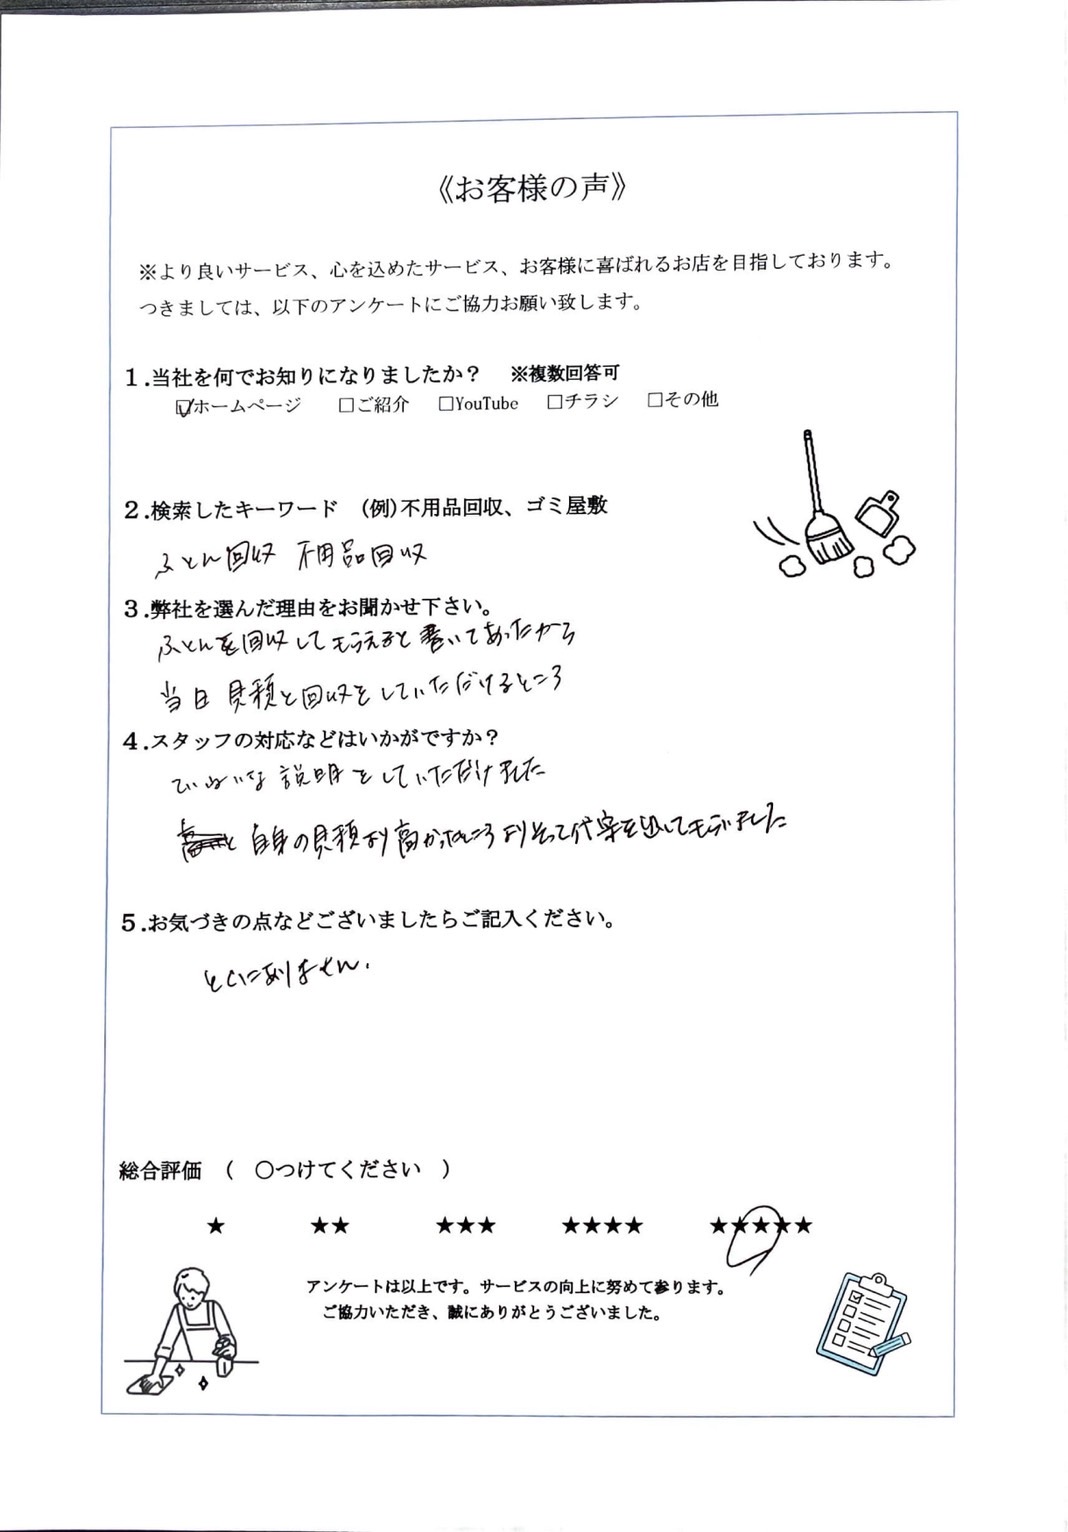 《お客様の声》
※より良いサービス、心を込めたサービス、お客様に喜ばれるお店を目指しております。
つきましては、以下のアンケートにご協力お願い致します。
1.当社を何でお知りになりましたか? ※複数回答可
☑ホームページ □ご紹介 □YouTube □チラシ □その他
2.検索したキーワード (例)不用品回収、ゴミ屋敷
ふとん回収 不用品回収
3.弊社を選んだ理由をお聞かせ下さい。
ふとんを回収してもらえると書いてあったから
当日見積と回収をしていただけるところ
4.スタッフの対応などはいかがですか?
ていねいな説明をしていただけました
自身の見積より高かったところ
5.お気づきの点などございましたらご記入ください。
とくにありません.
総合評価 ( ○つけてください )
★ ★★ ★★★ ★★★★ ★★★★★
アンケートは以上です。サービスの向上に努めて参ります。
ご協力いただき、誠にありがとうございました。